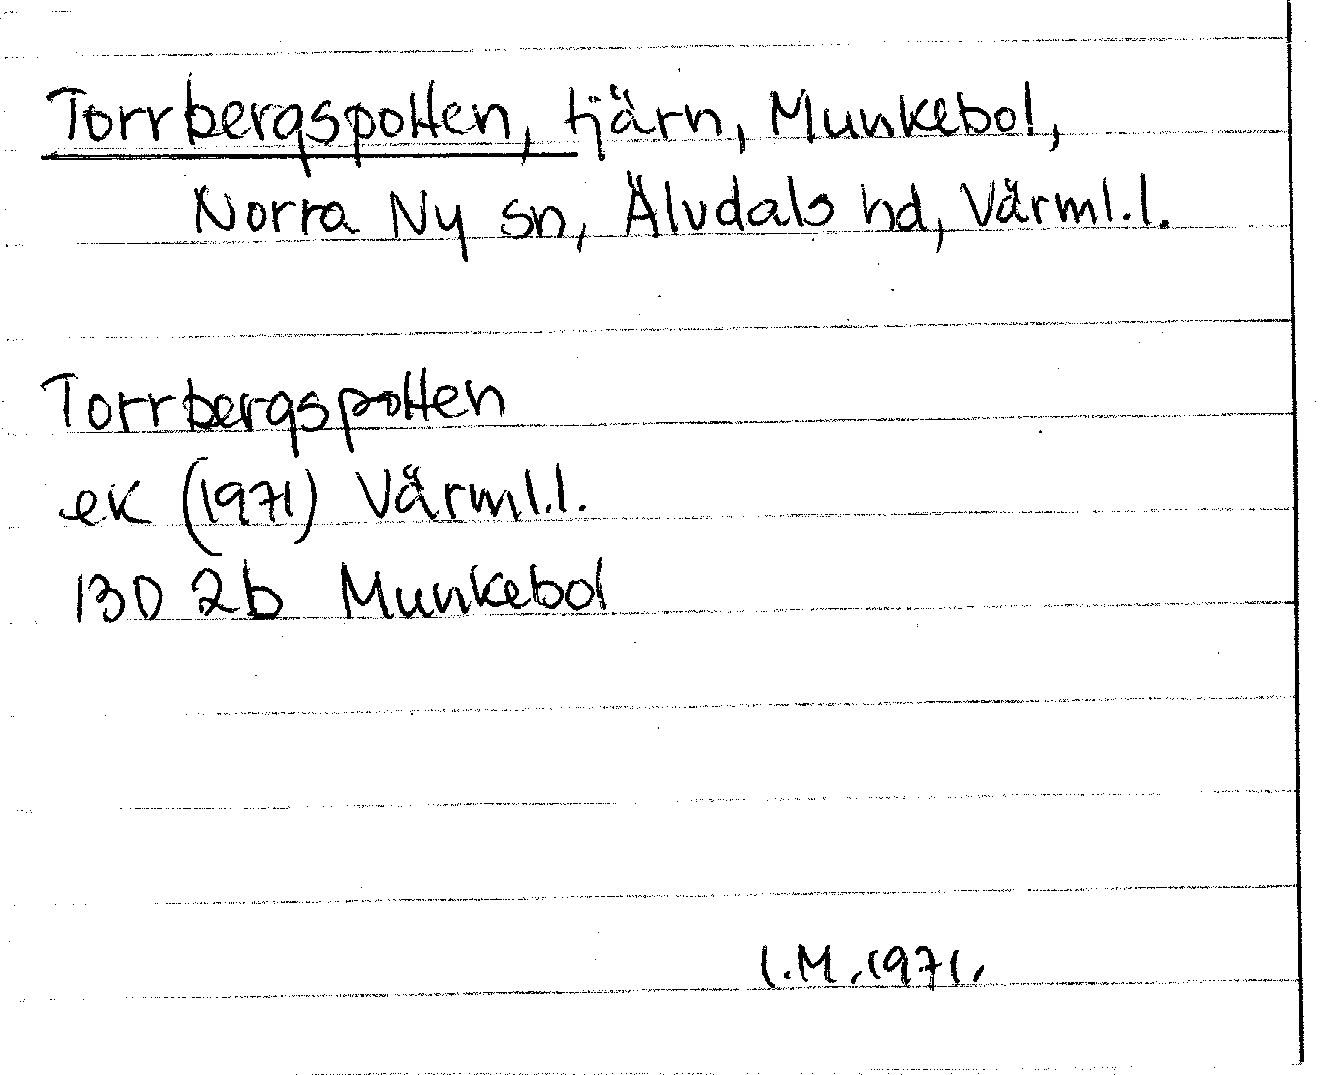 Torrbergspotten, tjärn, Munkebol,
Norra Ny sn, Älvdals hd, Värml.l.
Torrbergspotten
ek (1971) Värml.l.
13D 2b Munkebol
I.M.1971.